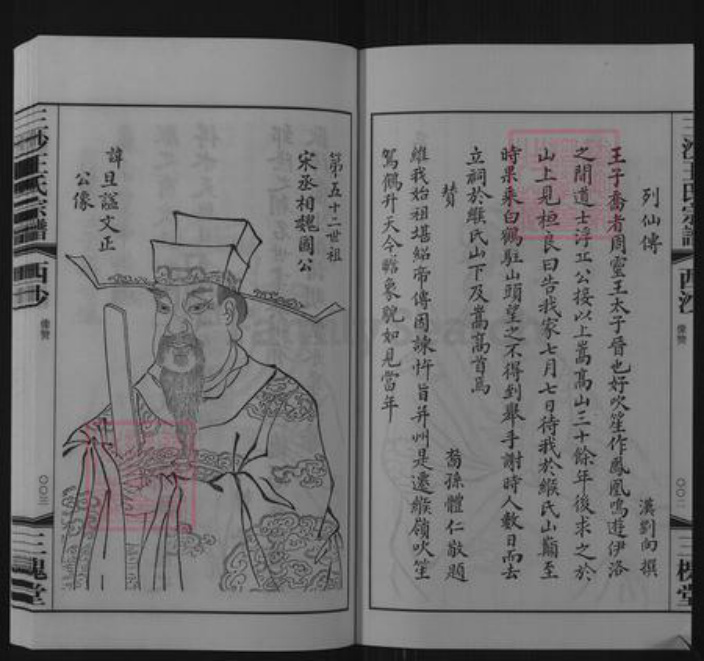 列仙傳
漢劉向撰
王子喬者周靈王太子晉也好吹笙作鳳凰鳴遊伊洛
之間道士浮丘公接以上嵩高山三十餘年後求之於
山上見桓良曰告我家七月七日待我於緱氏山巔至
時果乘白鶴駐山頭望之不得到舉手謝時人數日而去
立祠於緱氏山下及嵩高首焉
贊
裔孫體仁敬題
維我始祖堪紹帝傳因諫忤旨并州是遷緱嶺吹笙
駕鶴升天今瞻象貌如見當年
三沙王氏宗譜
西沙
像贊
〇〇二
三槐堂
第五十二世祖
宋丞相魏國公
諱旦諡文正
公像
三沙王氏宗譜
西沙
像贊
〇〇三
三槐堂